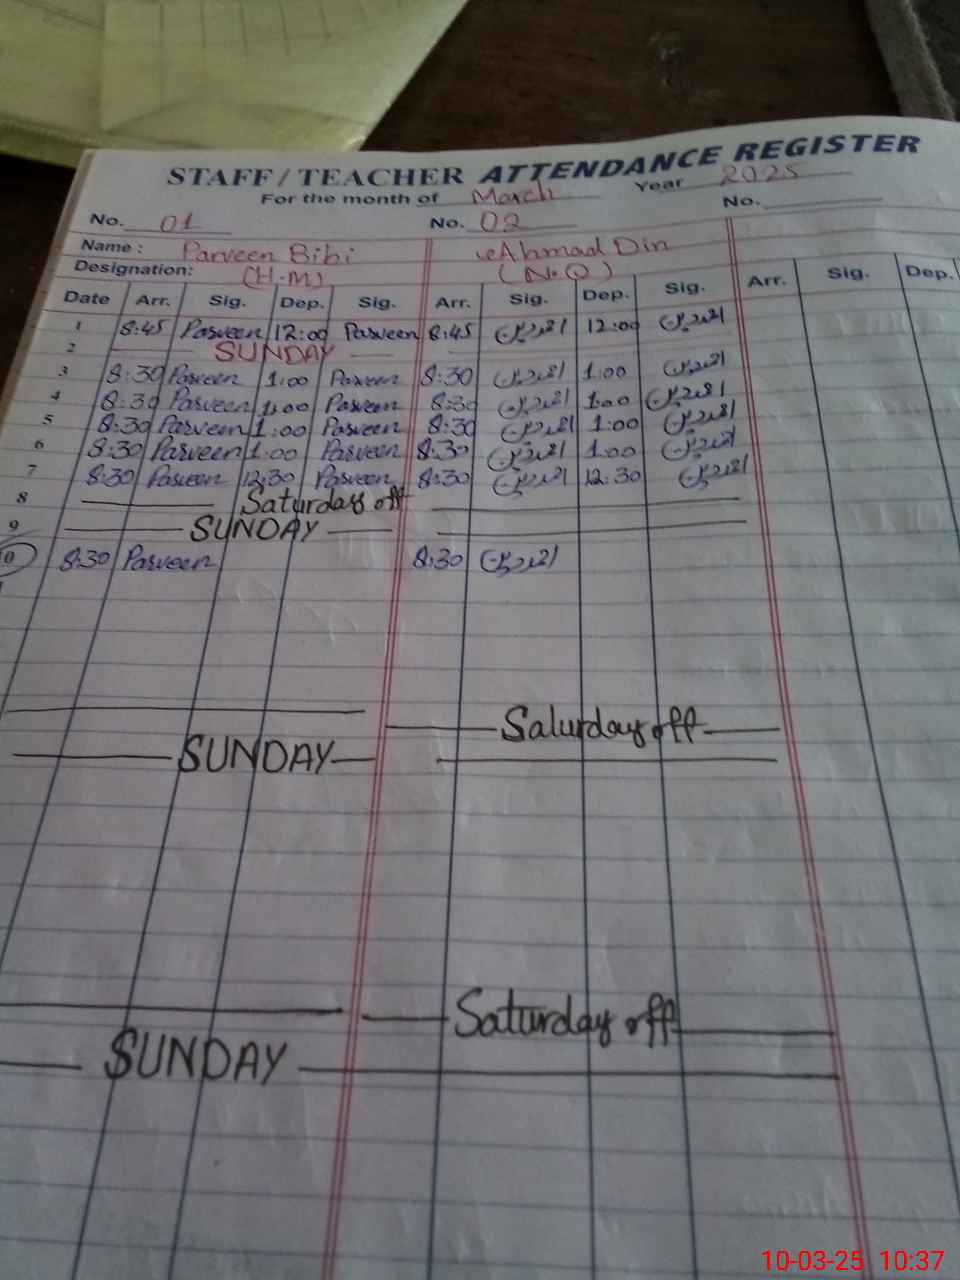 STAFF / TEACHER ATTENDANCE REGISTER
For the month of March Year 2025
No. 01 No. 02 No.
Name: Parveen Bibi Ahmad Din
Designation: (H.M) (N.Q)
Date Arr. Sig. Dep. Sig. Arr. Sig. Dep. Sig. Arr. Sig. Dep.
1 8:45 Parveen 12:00 Parveen 8:45 احمددین 12:00 احمددین
2 SUNDAY
3 8:30 Parveen 1:00 Parveen 8:30 احمددین 1:00 احمددین
4 8:30 Parveen 1:00 Parveen 8:30 احمددین 1:00 احمددین
5 8:30 Parveen 1:00 Parveen 8:30 احمددین 1:00 احمددین
6 8:30 Parveen 1:00 Parveen 8:30 احمددین 1:00 احمددین
7 8:30 Parveen 12:30 Parveen 8:30 احمددین 12:30 احمددین
8 Saturday off
9 SUNDAY
0 8:30 Parveen 8:30 احمددین
Saturday off
SUNDAY
Saturday off
SUNDAY
10-03-25 10:37